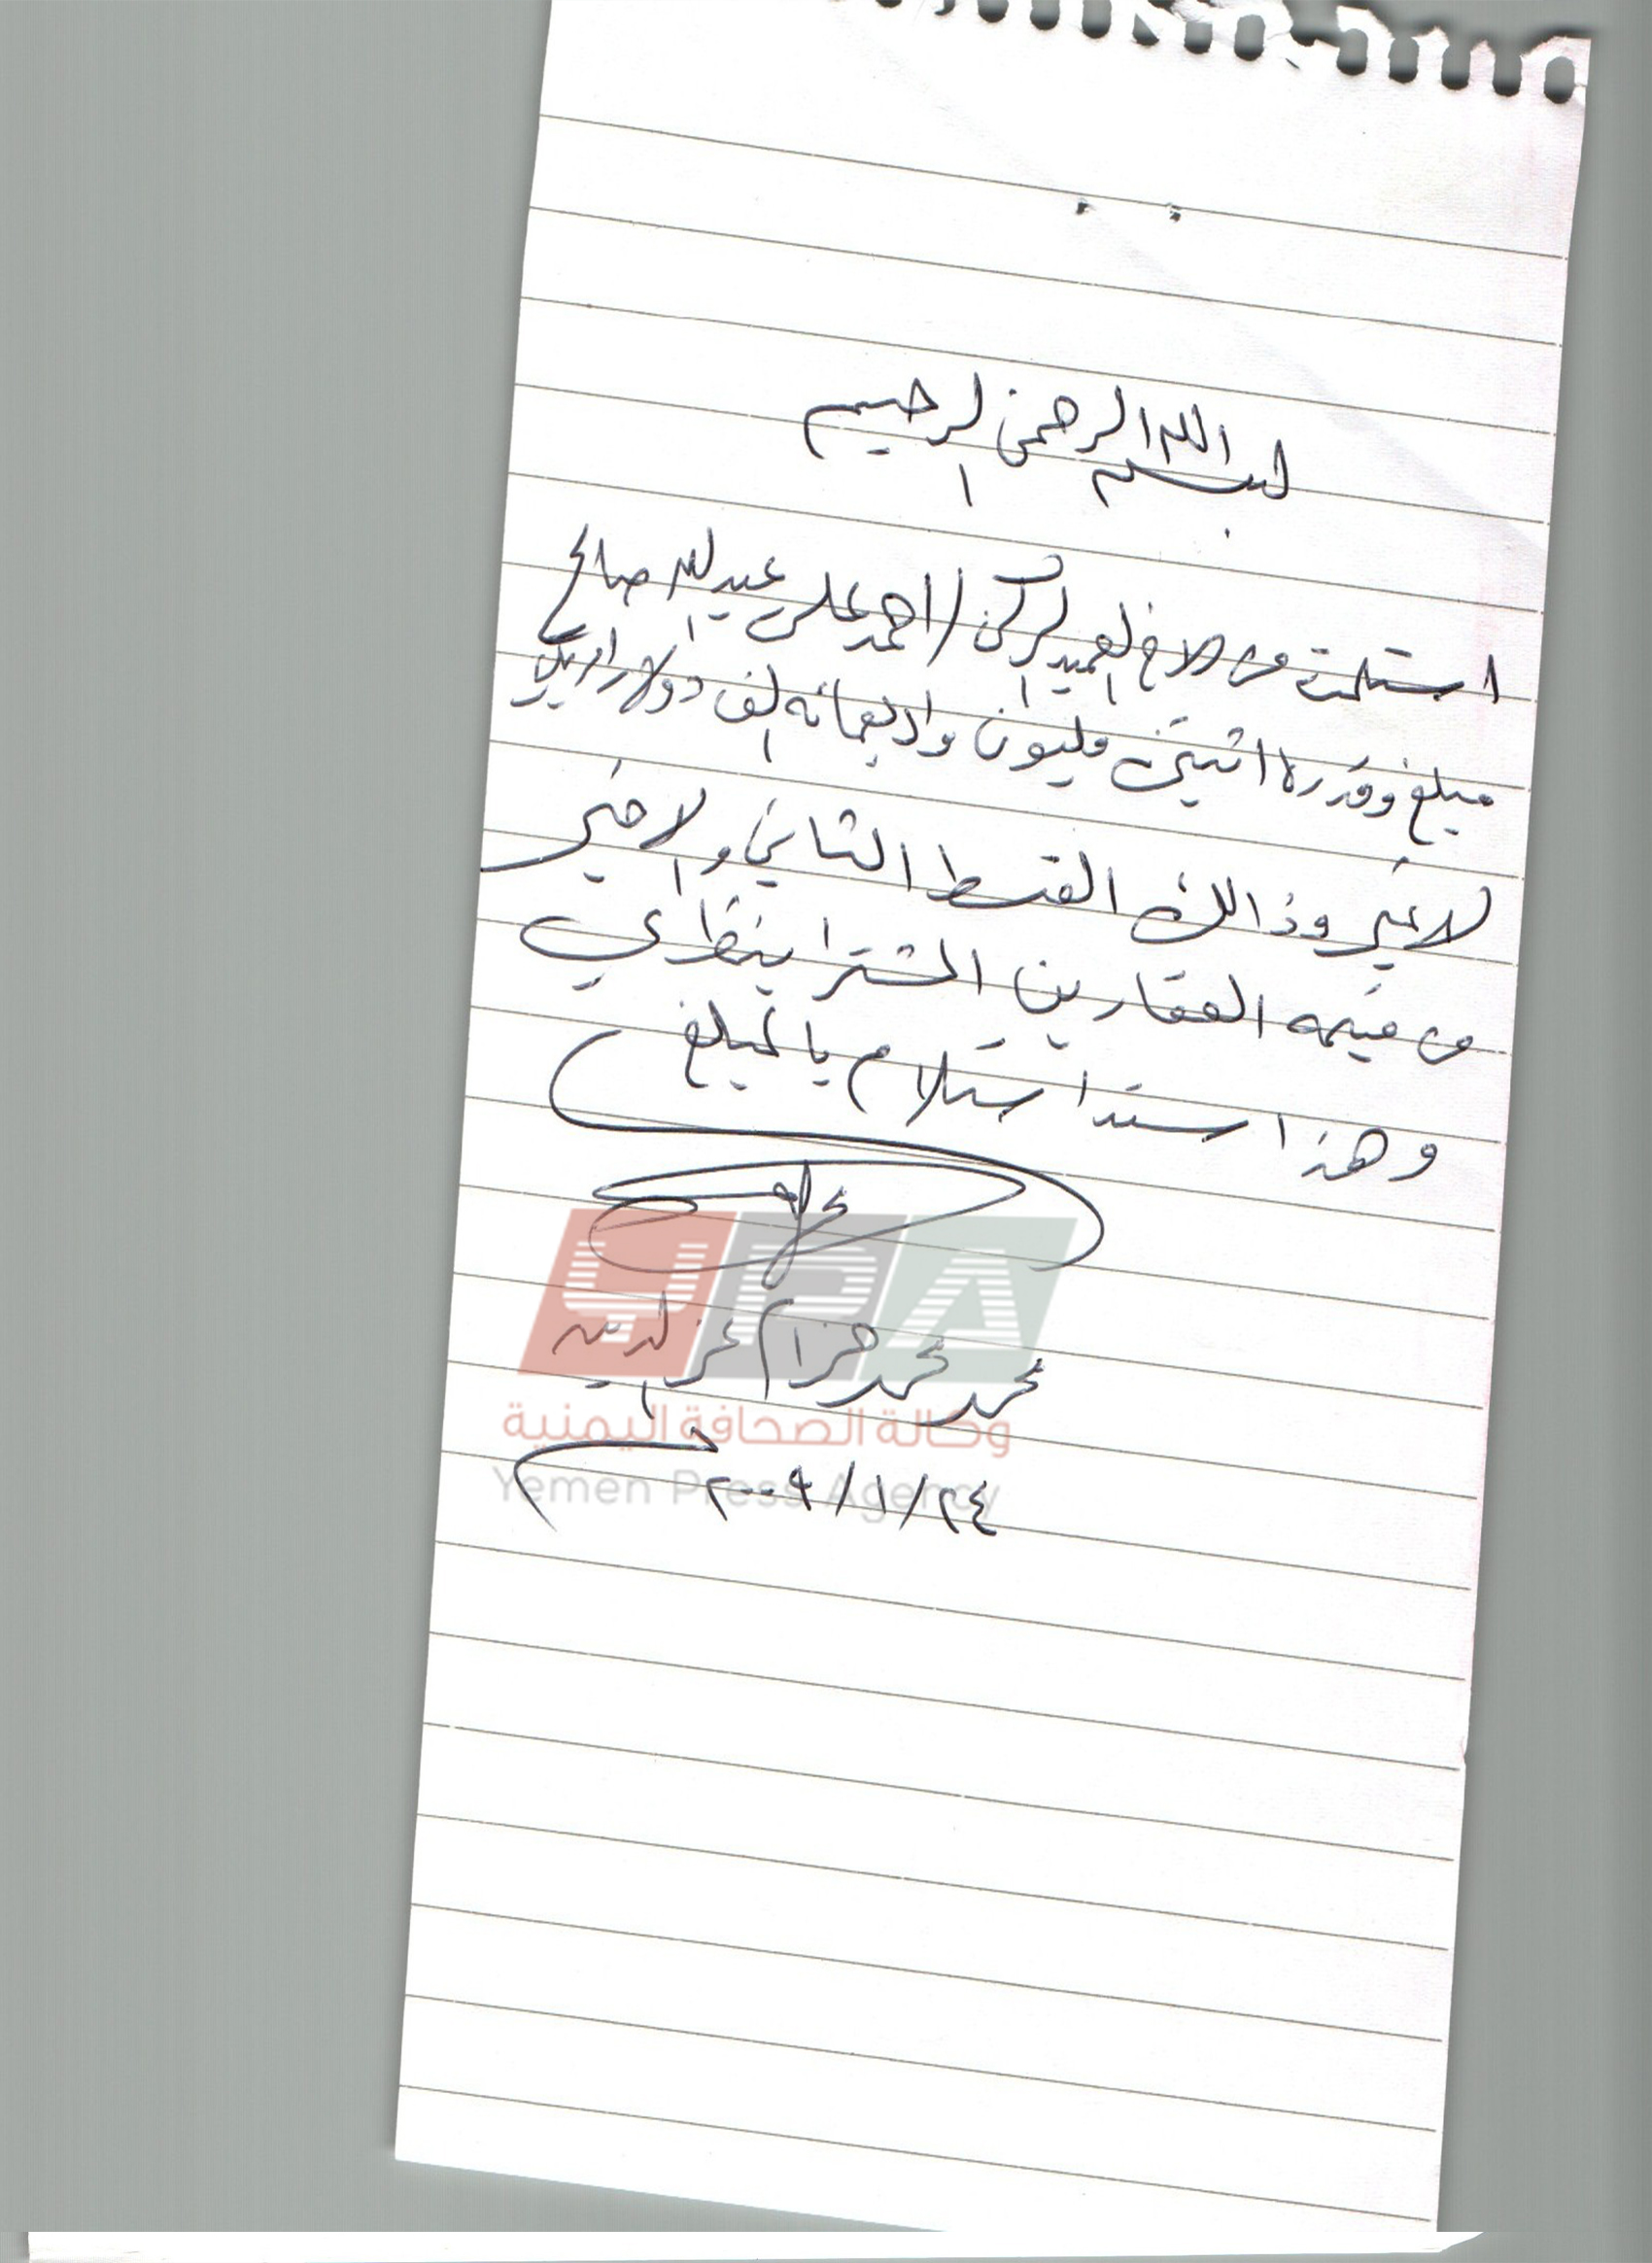 بسم الله الرحمن الرحيم
استلمت من الاخ العميد الركن / احمد علي عبدالله صالح
مبلغ وقدره اثنين مليون واربعمائه الف دولار امريكي
لاغير وذالك القسط الثاني والاخير
من قيمه العقارين المشترا بنظري
وهذا سند استلام بالمبلغ
محمد محمد حزام عزالدين
٢٠٠٩/١/٢٤
YPA
وكالة الصحافة اليمنية
Yemen Press Agency